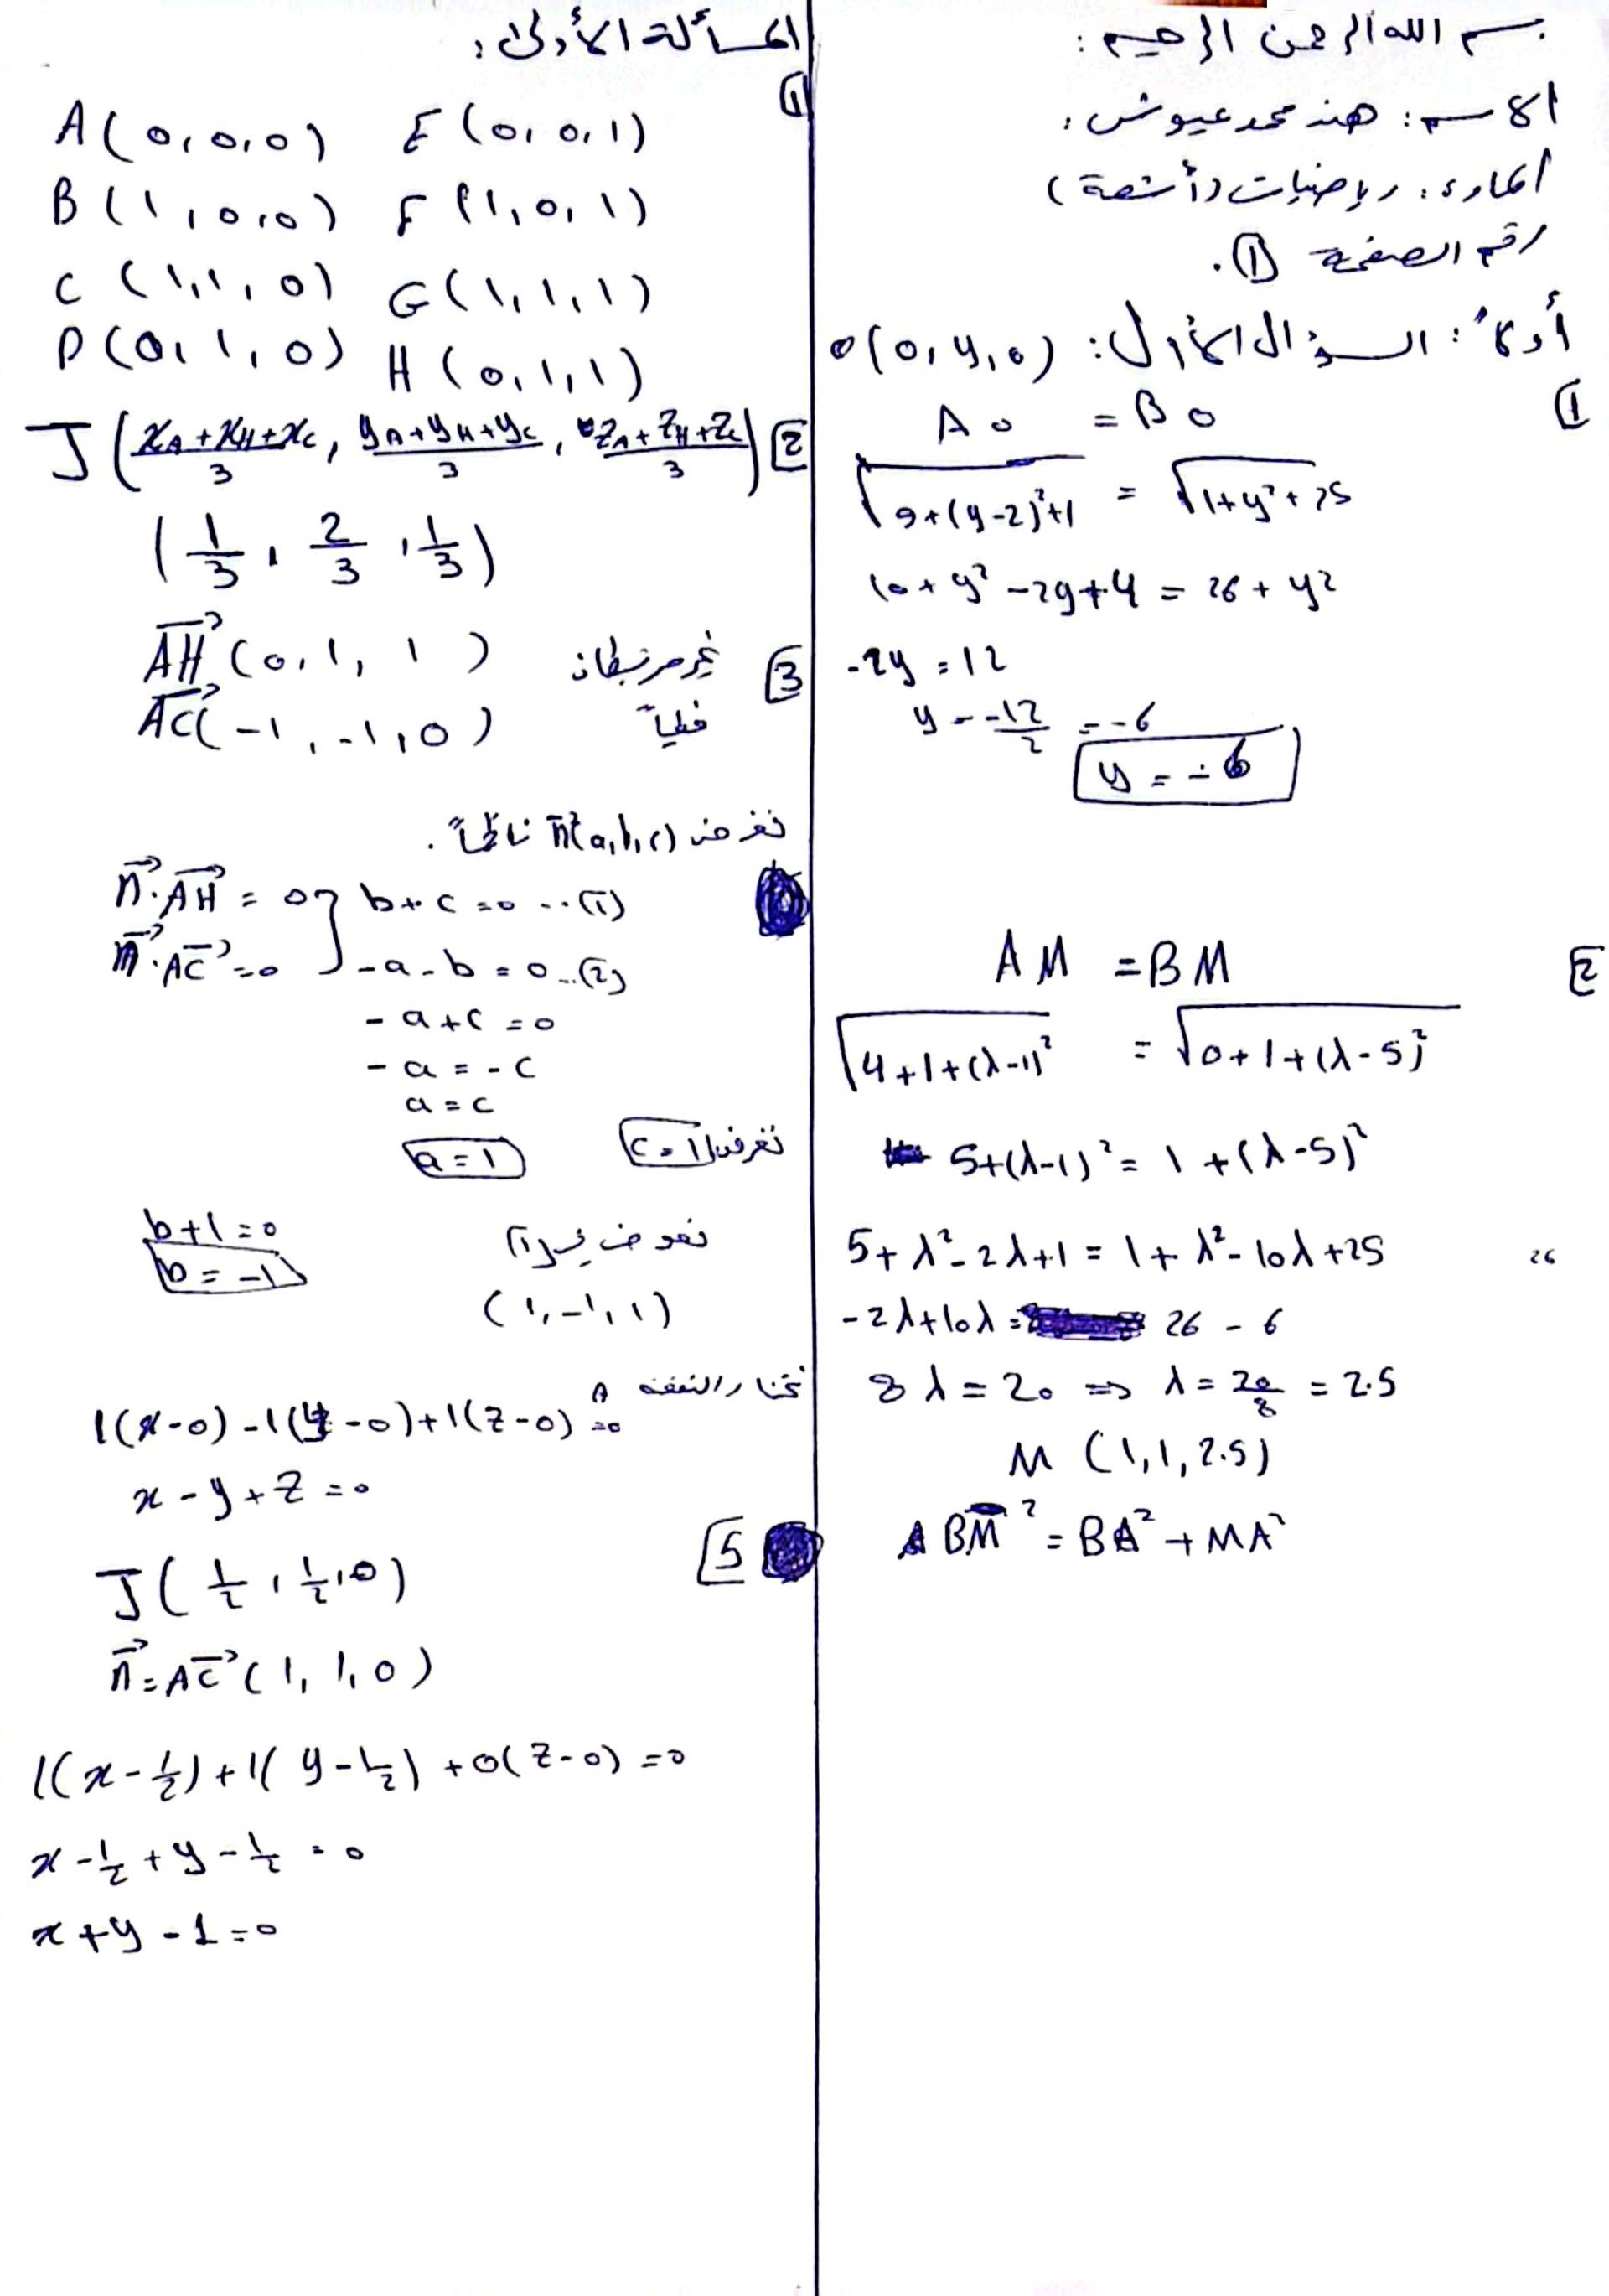 بسم الله الرحمن الرحيم:
الاسم: هند محمد عيوش.
المادة: رياضيات (أشعة)
رقم الصفحة ①.
أولاً: السؤال الأول: o(0, y, 0)
1
Ao = Bo
√9+(y-2)²+1 = √1+y²+25
10 + y² -2y+4 = 26 + y²
-2y = 12
y = -12/2 = -6
y = -6
2
AM = BM
√4+1+(λ-1)² = √0+1+(λ-5)²
5+(λ-1)² = 1 + (λ-5)²
5+ λ²- 2λ+1 = 1+ λ²- 10λ+25
26
-2λ+10λ = 26 - 6
8λ = 20 => λ = 20/8 = 2.5
M (1, 1, 2.5)
BM² = BA² + MA²
المسألة الأولى:
1
A(0, 0, 0) E(0, 0, 1)
B(1, 0, 0) F(1, 0, 1)
C(1, 1, 0) G(1, 1, 1)
D(0, 1, 0) H(0, 1, 1)
2 J((xA+xH+xC)/3, (yA+yH+yC)/3, (zA+zH+zC)/3)
(1/3, 2/3, 1/3)
3 AH→(0, 1, 1) غير مرتبطان
AC→(-1, -1, 0) خطياً
نفرض n→(a, b, c) ناظماً.
n→.AH→ = 0 } b+c=0 ..(1)
n→.AC→=0 } -a-b=0..(2)
-a+c=0
-a=-c
a=c
نفرض c=1 a=1
نعوض في (1) b+1=0
b=-1
(1, -1, 1)
نختار النقطة A
1(x-0)-1(y-0)+1(z-0)=0
x-y+z=0
5
J(1/2, 1/2, 0)
n→=AC→(1, 1, 0)
1(x-1/2)+1(y-1/2)+0(z-0)=0
x-1/2+y-1/2=0
x+y-1=0